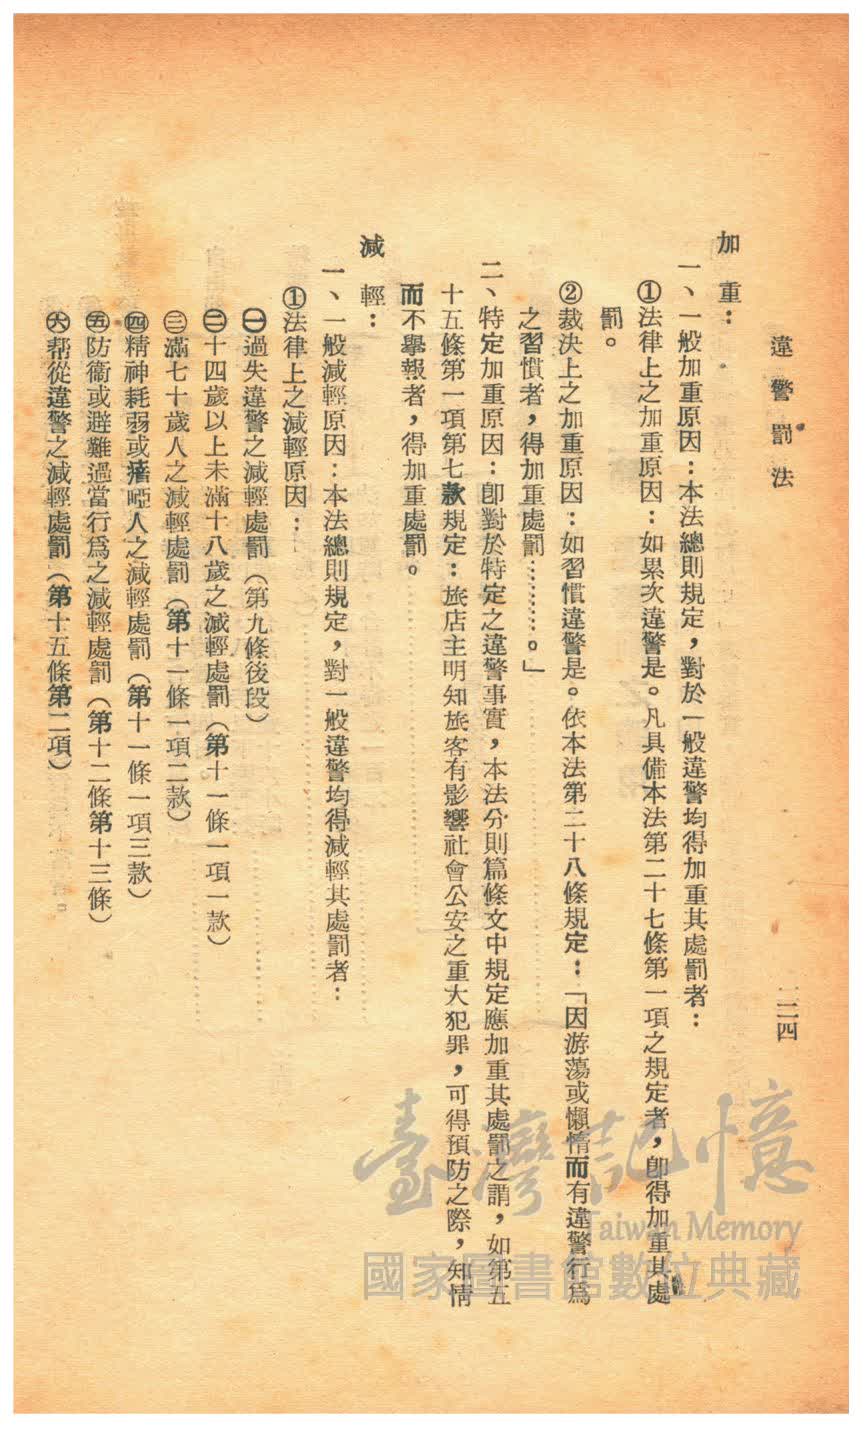 違警罰法
一二四
加重：
一、一般加重原因：本法總則規定，對於一般違警均得加重其處罰者：
①法律上之加重原因：如累次違警是。凡具備本法第二十七條第一項之規定者，卽得加重其處
罰。
②裁決上之加重原因：如習慣違警是。依本法第二十八條規定：「因游蕩或懶惰而有違警行爲
之習慣者，得加重處罰………。」
二、特定加重原因：卽對於特定之違警事實，本法分則篇條文中規定應加重其處罰之謂，如第五
十五條第一項第七款規定：旅店主明知旅客有影響社會公安之重大犯罪，可得預防之際，知情
而不舉報者，得加重處罰。
減輕：
一、一般減輕原因：本法總則規定，對一般違警均得減輕其處罰者：
①法律上之減輕原因：
㊀過失違警之減輕處罰（第九條後段）
㊁十四歲以上未滿十八歲之減輕處罰（第十一條一項一款）
㊂滿七十歲人之減輕處罰（第十一條一項二款）
㊃精神耗弱或瘖啞人之減輕處罰（第十一條一項三款）
㊄防衞或避難過當行爲之減輕處罰（第十二條第十三條）
㊅帮從違警之減輕處罰（第十五條第二項）
臺灣記憶
Taiwan Memory
國家圖書館數位典藏